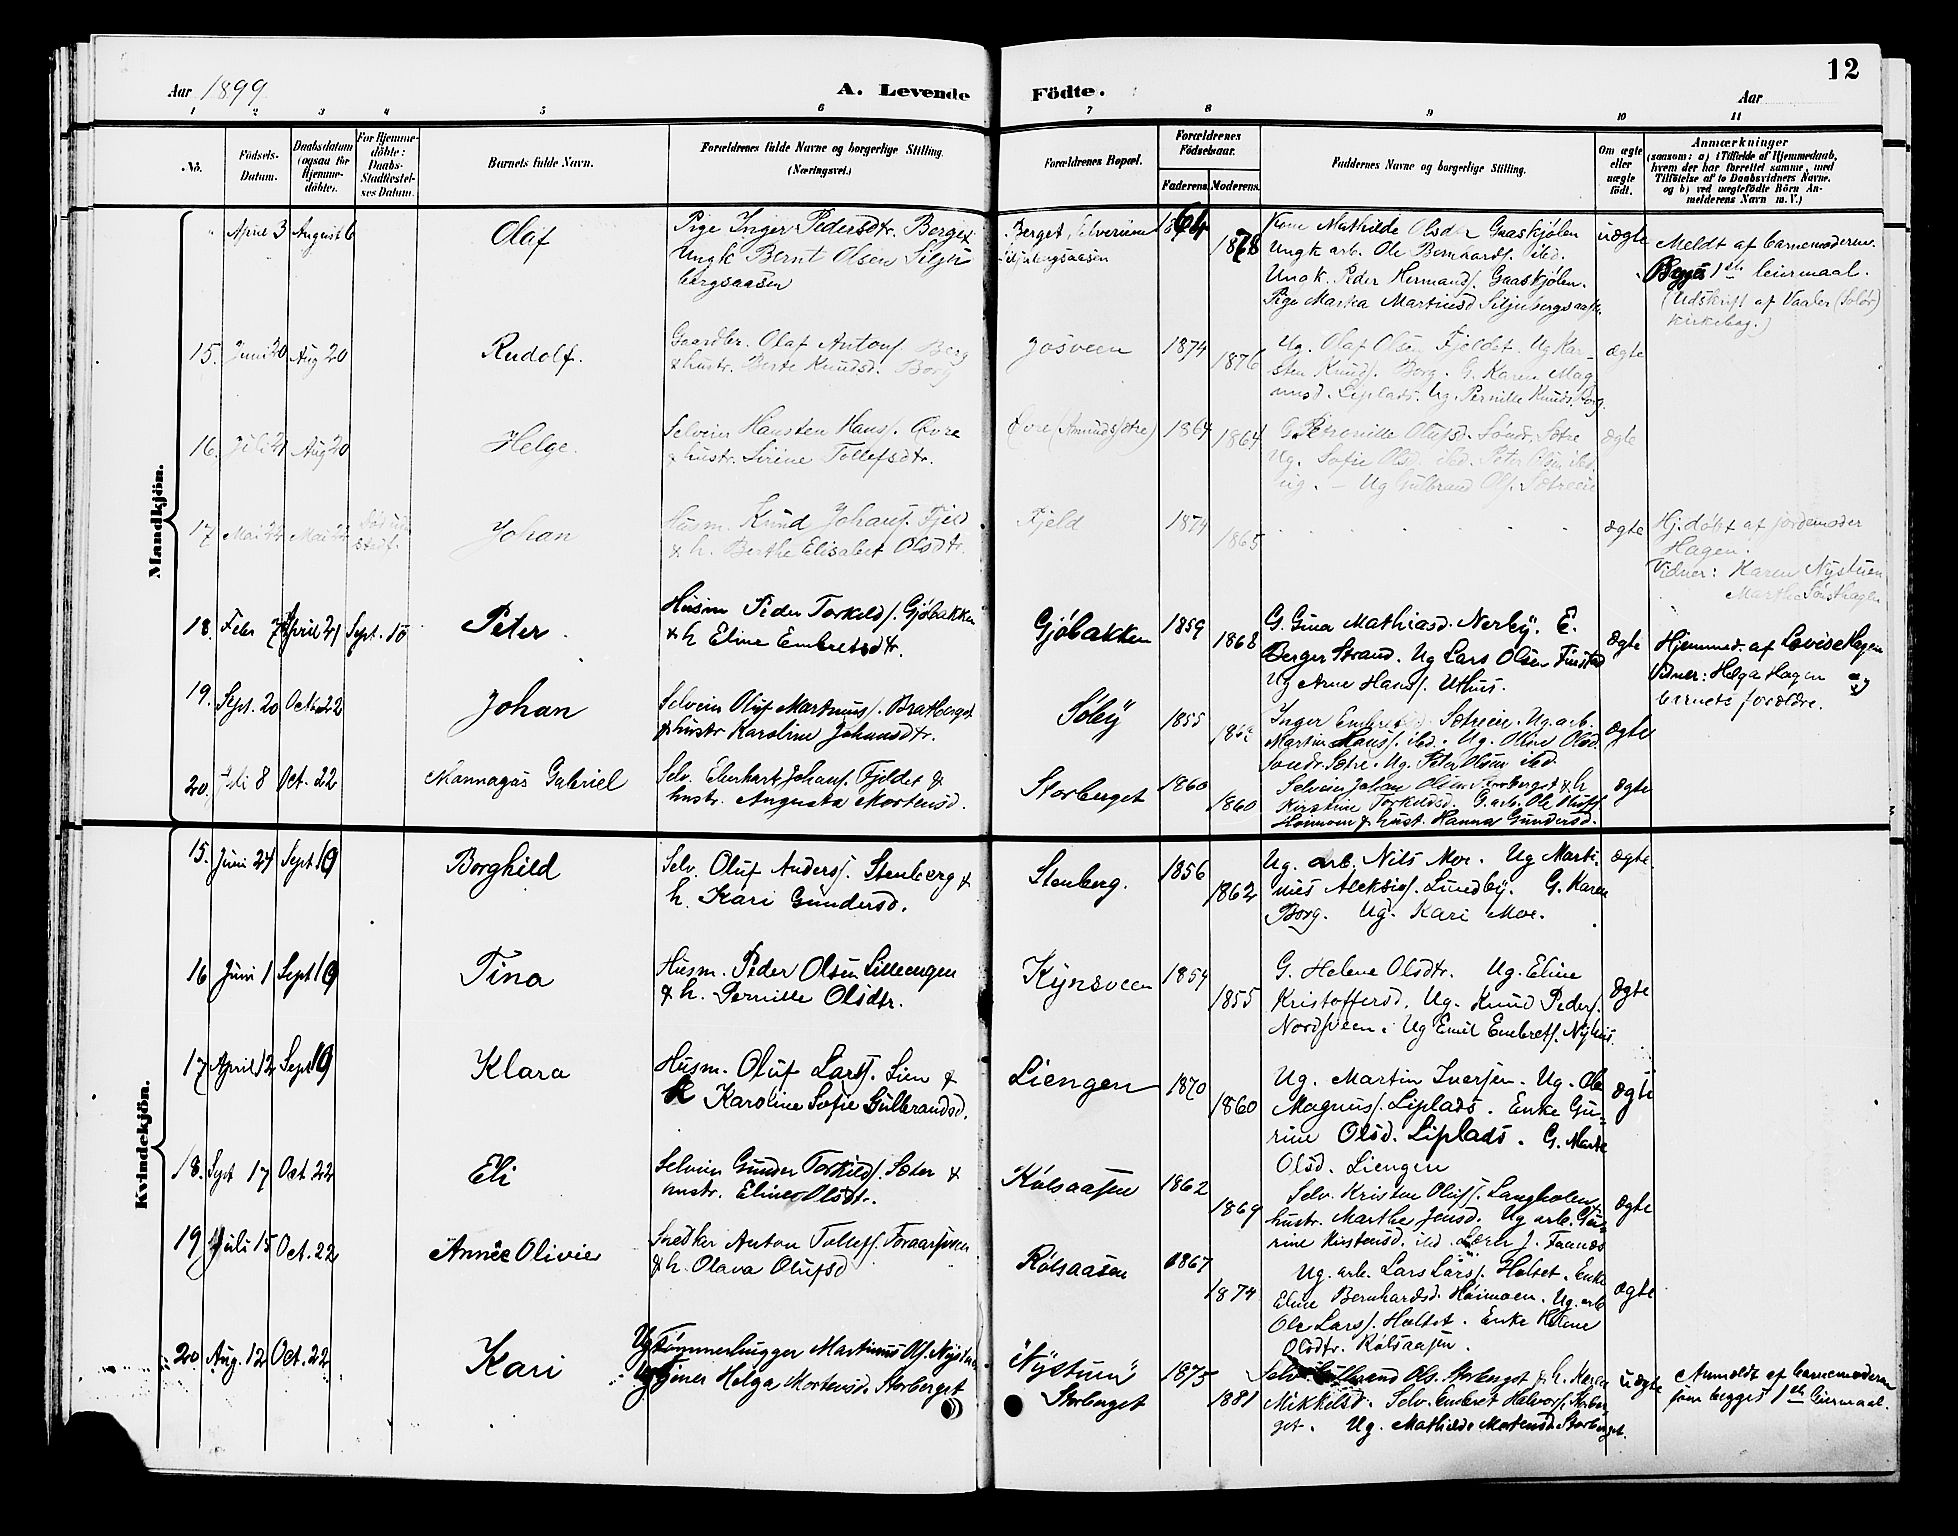 12
Aar 1899.
A. Levende Födte.
Aar
1 2 3 4 5 6 7 8 9 10 11
No.
Födsels-
Datum.
Daabsdatum
(ogsaa for
Hjemme-
döbte).
For Hjemme-
döbte:
Daabs-
Stadfæstel-
ses Datum.
Barnets fulde Navn.
Forældrenes fulde Navne og borgerlige Stilling.
(Næringsvei.)
Forældrenes Bopæl.
Forældrenes
Födselsaar.
Faderens. Moderens.
Faddernes Navne og borgerlige Stilling.
Om ægte
eller
uægte
födt.
Anmærkninger
(saasom: a) i Tilfælde af Hjemmedaab,
hvem der har forrettet samme, med
Tilföielse af to Daabsvidners Navne,
og b) ved uægtefödte Börn An-
melderens Navn m. V.)
Mandkjön.
April 3 August 6
Olaf
Pige Inger Pedersdtr. Berget
Ungk Bernt Olsen Silju
bergsaasen
Berget, Elverum
Siljubergsaasen
1864
1878
Kone Mathilde Olsdtr Gaaskjølen
Ungk arb. Ole Bernhards/. ibd.
Ungk. Peder Hermands/. Gaaskjølen.
Pige Martea Martinusd Siljubergsaasen
uægte
Meldt af barnemoderen.
Begges 1ste leiermaal.
(Udskrift af Vaaler (Solør)
kirkebog.)
15. Juni 20 Aug 20
Rudolf.
Gaardbr. Olaf Antons/ Berg
& hustr. Berte Knudsd. Borg
Josveen
1874
1876
Ug. Olaf Olsen Fjeldet. Ug Kar-
sten Knuds/. Borg. G. Karen Mag
nusd. Liplads. Ug. Pernille Knudsd. Borg.
ægte
16. Juli 21 Aug 20
Helge.
Selveier Hansten Hans/. Øvre
& hustr. Sirine Tollefsdtr.
Øvre (Amundssætre)
1864
1864
G. Petronille Olufsd. Søndr. Sætre
Ug. Sofie Olsd. ibd. Peter Olsen ibd.
ug. – Ug Gulbrand Ols/. Sætreeie
ægte
17 Mai 22 Mai 22
Johan
Husm. Knud Johans/. Fjeld
& h. Berthe Elisabet Olsdtr.
Fjeld
1874
1865
ægte
Hj.døbt af jordemoder
Hagen.
Vidner: Karen Nystuen
Marthe Sørhagen
18. Febr 7 April 21 Sept. 10
Peter.
Husm Peder Torkilds/. Gjøbakken
& h Eline Embretsdtr.
Gjøbakken
1859
1868
G. Gina Mathiasd. Nerby. E.
Berger Strand. Ug Lars Olsen Finstad
Ug Arne Hans/. Uthus.
ægte
Hjemmed. af Lovise Hagen
Vidner: Helga Hagen og
barnets forældre.
19. Sept. 20 Octbr 22
Johan
Selveier Oluf Martinus/. Bratberget
& hustr Karoline Johansdtr.
Søby
1855
1862
Inger Embretsd. Sætreeie. Ug. arb.
Martin Hans/. ibd. Ug. Oline Olsd.
Søndr. Sætre. Ug. Peter Olsen ibd.
ægte
20. Juli 8 Oct. 22
Mannagas Gabriel
Selv. Eberhart Johans/. Fjeldet &
hustr. Augusta Mortensd.
Storberget
1860
1860
Selveier Johan Olsen Storberget & h
Kirstine Torkildsd. G. arb. Ole Olufs/
Høimoen & hust. Hanna Gundersd.
ægte
Kvindekjön.
15. Juni 24 Sept 10
Borghild
Selv. Oluf Anders/. Stenberg &
h. Kari Gundersd.
Stenberg.
1856
1862
Ug. arb. Nils Moe. Ug Marti-
nus Aleksis/. Lundby. G. Karen
Borg. Ug. Kari Moe.
ægte
16 Juni 1 Sept 10
Tina
Husm. Peder Olsen Lilleengen
& h. Pernille Olsdtr.
Kynsveen
1854
1855
G. Helene Olsdtr. Ug. Eline
Kristoffersd. Ug. Knud Peders/.
Nordsveen. Ug Emil Embrets/. Nyhus.
ægte
17 April 12 Sept 10
Klara
Husm. Oluf Lars/. Lien &
h Karoline Sofie Gulbrandsd.
Liengen
1870
1860
Ug. Martin Iversen. Ug. Ole
Magnus/. Liplads. Enke Gu-
rine Olsd. Liplads. G. Marte
Olsd. Liengen
ægte
18. Sept 17 Oct 22
Eli
Selveier Gunder Torkilds/. Sæter &
hustr. Eline Olsdtr.
Kølsaasen
1862
1869
Selv. Kristen Olufs/. Langholen
hustr. Marthe Jensd. Ug arb. Gu-
rine Kirstensd. ibd. Lærer J. Faanæs
ægte
19 Juli 15 Oct. 22
Annèe Olivie
Snedker Anton Tollefs/. Foraarsveen
& h. Olava Olufsd
Rølsaasen
1867
1874
Ug. arb. Lars Lars/. Holtet. Enke
Eline Bernhardsd. Høimoen. Ug. arb
Ole Lars/. Holtet. Enke Helene
Olsdtr. Rølsaasen.
ægte
20 Aug. 12 Oct. 22
Kari
Ug Tømmerhugger Martinus Ols/. Nystuen
Ug Tjener Helga Mortensd. Storberget
"Nystuen"
Storberget
1875
1881
Selv. Gulbrand Ols. Storberget & h. Karen
Mikkelsd. Selv. Embret Halvors/. Storber-
get. Ug. Mathilde Mortensd. Storberget.
uægte
Anmeldt af barnemoderen
som begges 1ste Leiermaal.